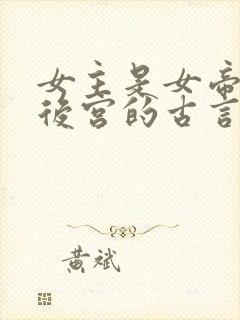 女主是女帝
後宮的古言
黃斌